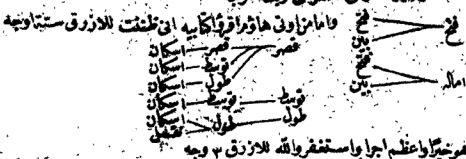 واما من اوتى هاؤم اقرؤا كتابيه انى ظننت للازرق ستة اوجه
فتح فتح
بين
قصر قصر اسكان
توسط اسكان
طول اسكان
فتح
اماله بين
توسط توسط اسكان
طول طول اسكان
نقل
هو خيرًا واعظم اجرا واستغفروالله للازرق ٣ وجه